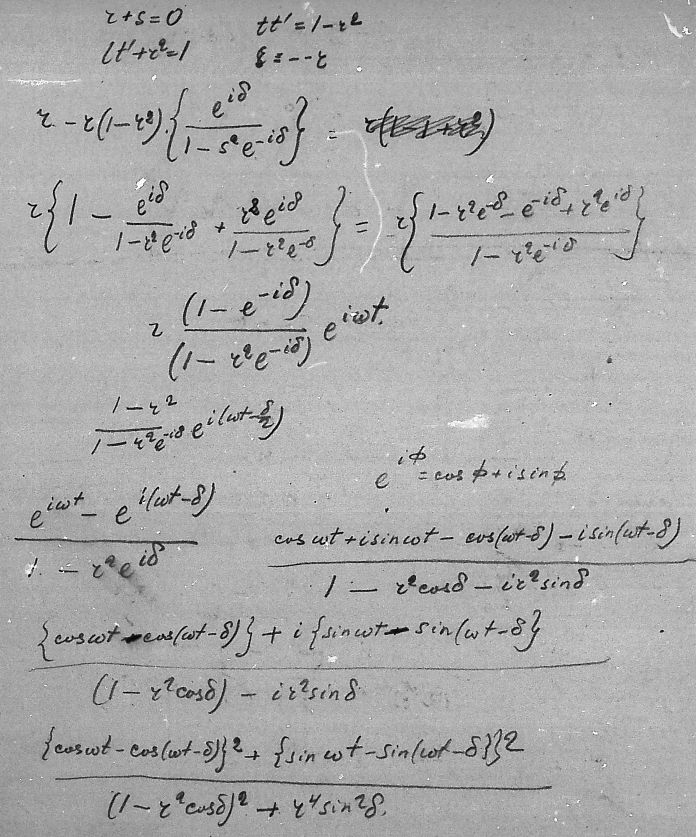 r+s=0 tt'=1-r²
tt'+r²=1 s=--r
r - r(1-r²).{e^{iδ}/(1-s²e^{-iδ})} =
r{1 - e^{iδ}/(1-r²e^{-iδ}) + r²e^{iδ}/(1-r²e^{-δ})} = r{(1-r²e^{-δ}-e^{-iδ}+r²e^{iδ})/(1-r²e^{-iδ})}
r (1-e^{-iδ})/(1-r²e^{-iδ}) e^{iωt}.
(1-r²)/(1-r²e^{-iδ}) e^{i(ωt-δ/2)}
e^{iφ}=cos φ+i sin φ
(e^{iωt} - e^{i(ωt-δ)})/(1 - r²e^{iδ}) (cos ωt+i sin ωt - cos(ωt-δ) - i sin(ωt-δ))/(1 - r²cosδ - ir²sinδ)
({cos ωt - cos(ωt-δ)} + i{sin ωt - sin(ωt-δ})/((1-r²cosδ) - ir²sinδ)
({cos ωt - cos(ωt-δ)}² + {sin ωt - sin(ωt-δ)}²)/((1-r²cosδ)² + r⁴sin²δ.)